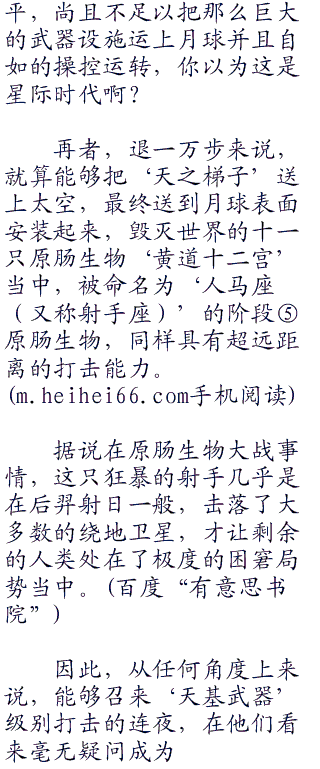 平，尚且不足以把那么巨大
的武器设施运上月球并且自
如的操控运转，你以为这是
星际时代啊？
再者，退一万步来说，
就算能够把‘天之梯子’送
上太空，最终送到月球表面
安装起来，毁灭世界的十一
只原肠生物‘黄道十二宫’
当中，被命名为‘人马座
（又称射手座）’的阶段⑤
原肠生物，同样具有超远距
离的打击能力。
(m.heihei66.com手机阅读)
据说在原肠生物大战事
情，这只狂暴的射手几乎是
在后羿射日一般，击落了大
多数的绕地卫星，才让剩余
的人类处在了极度的困窘局
势当中。(百度“有意思书
院”)
因此，从任何角度上来
说，能够召来‘天基武器’
级别打击的连夜，在他们看
来毫无疑问成为